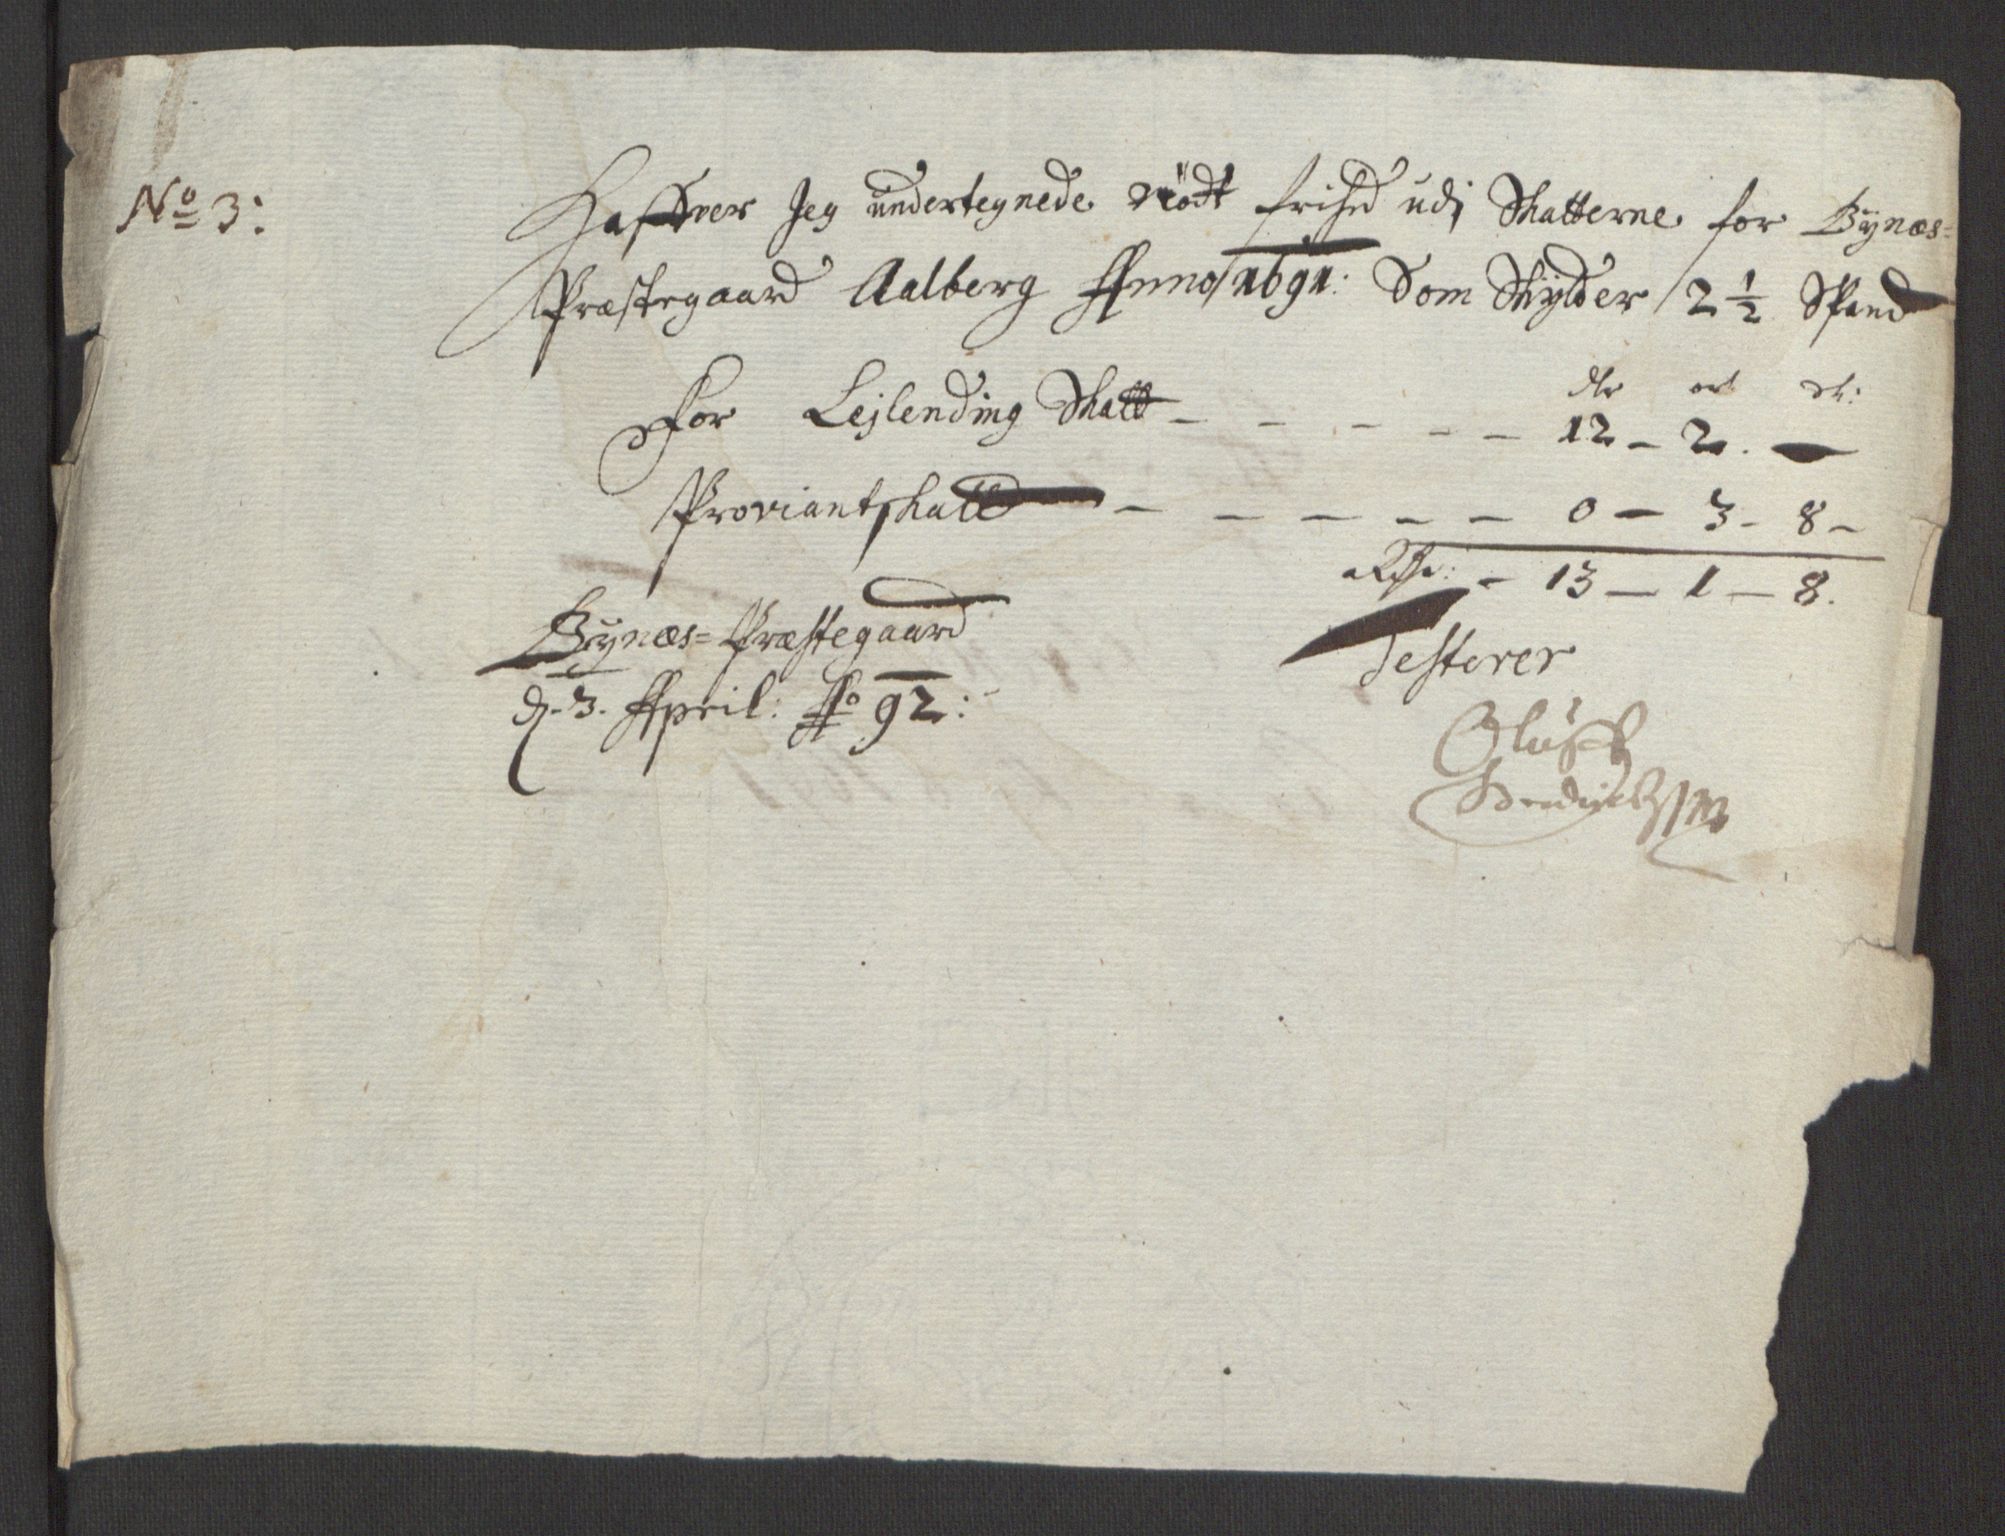 No 3:
Haffver Jeg undertegnede nødt frihed udj Skatterne for Bynæs=
Præstegaard Aalberg Anno 1691: Som Skylder 2 1/2 Spand
dlr ort sk:
For Lejlending Skatt - - - - - 12 - 2. -
Proviantskatt - - - - - 0 - 3 - 8 -
Rhr: - 13 - 1 - 8.
Bynæs= Præstegaard
d. 3. April: Ao 92:
Testerer
Oluff
Bendichssøn